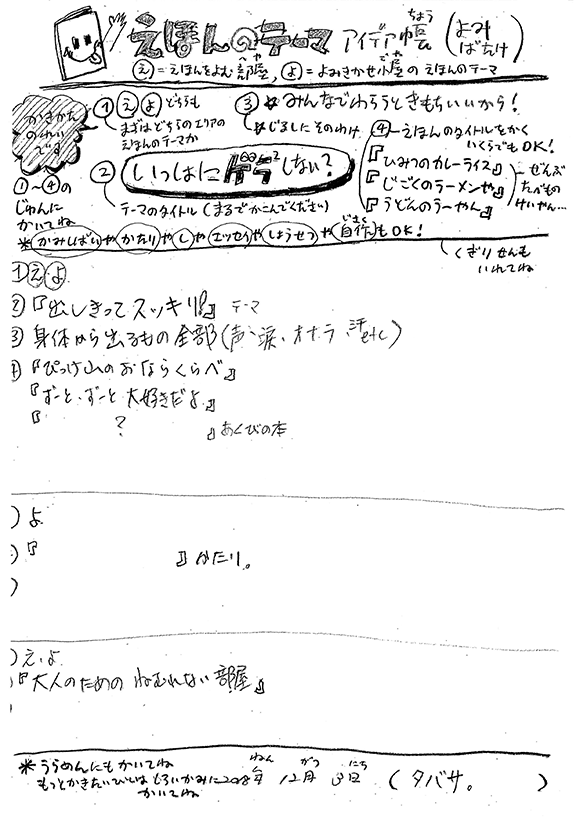 えほんのテーマ アイデア帳(ちょう) (よみばたけ)
え=えほんをよむ部屋(へや), よ=よみきかせ小屋(ごや)のえほんのテーマ
かきかたのれいです
①〜④のじゅんにかいてね
① え よ どちらも
まずはどちらのエリアの
えほんのテーマか
② いっしょに ゲラゲラ しない?
テーマのタイトル(まるでかこんでください)
③ ★みんなでわらうときもちいいから!
★じるしたそのわけ
④ーえほんのタイトルをかく
いくらでもOK!
『ひみつのカレーライス』
『じごくのラーメンや』
『うどんのうーやん』
ぜんぶ
たべもの
けいやん…
*かみしばいやかたりやしやエッセイやしょうせつや自作(じさく)もOK!
くぎりせんも
いれてね
① え よ
②『出しきってスッキリ!』 テーマ
③ 身体から出るもの全部(声、涙、オナラ、汗etc)
④『ぴっけ山のおならくらべ』
『ずーと、ずーと大好きだよ』
『 ? 』あくびの本
) よ
)『 』かたり。
)
) え、よ
『大人のための ねむれない部屋』
*うらめんにもかいてね
もっとかきたいひとはしろいかみに
かいてね
2018年(ねん) 12月(がつ) 3日(にち) (タバサ。 )